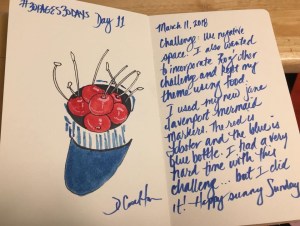 #30PAGES30DAYS Day 11
D Coulton
March 11, 2018
Challenge: Use negative
space. I also wanted
to incorporate my other
challenge and kept my
theme using food.
I used my new Jane
Davenport mermaid
markers. The red is
lobster and the blue is
blue bottle. I had a very
hard time with this
challenge... but I did
it! Happy sunny Sunday